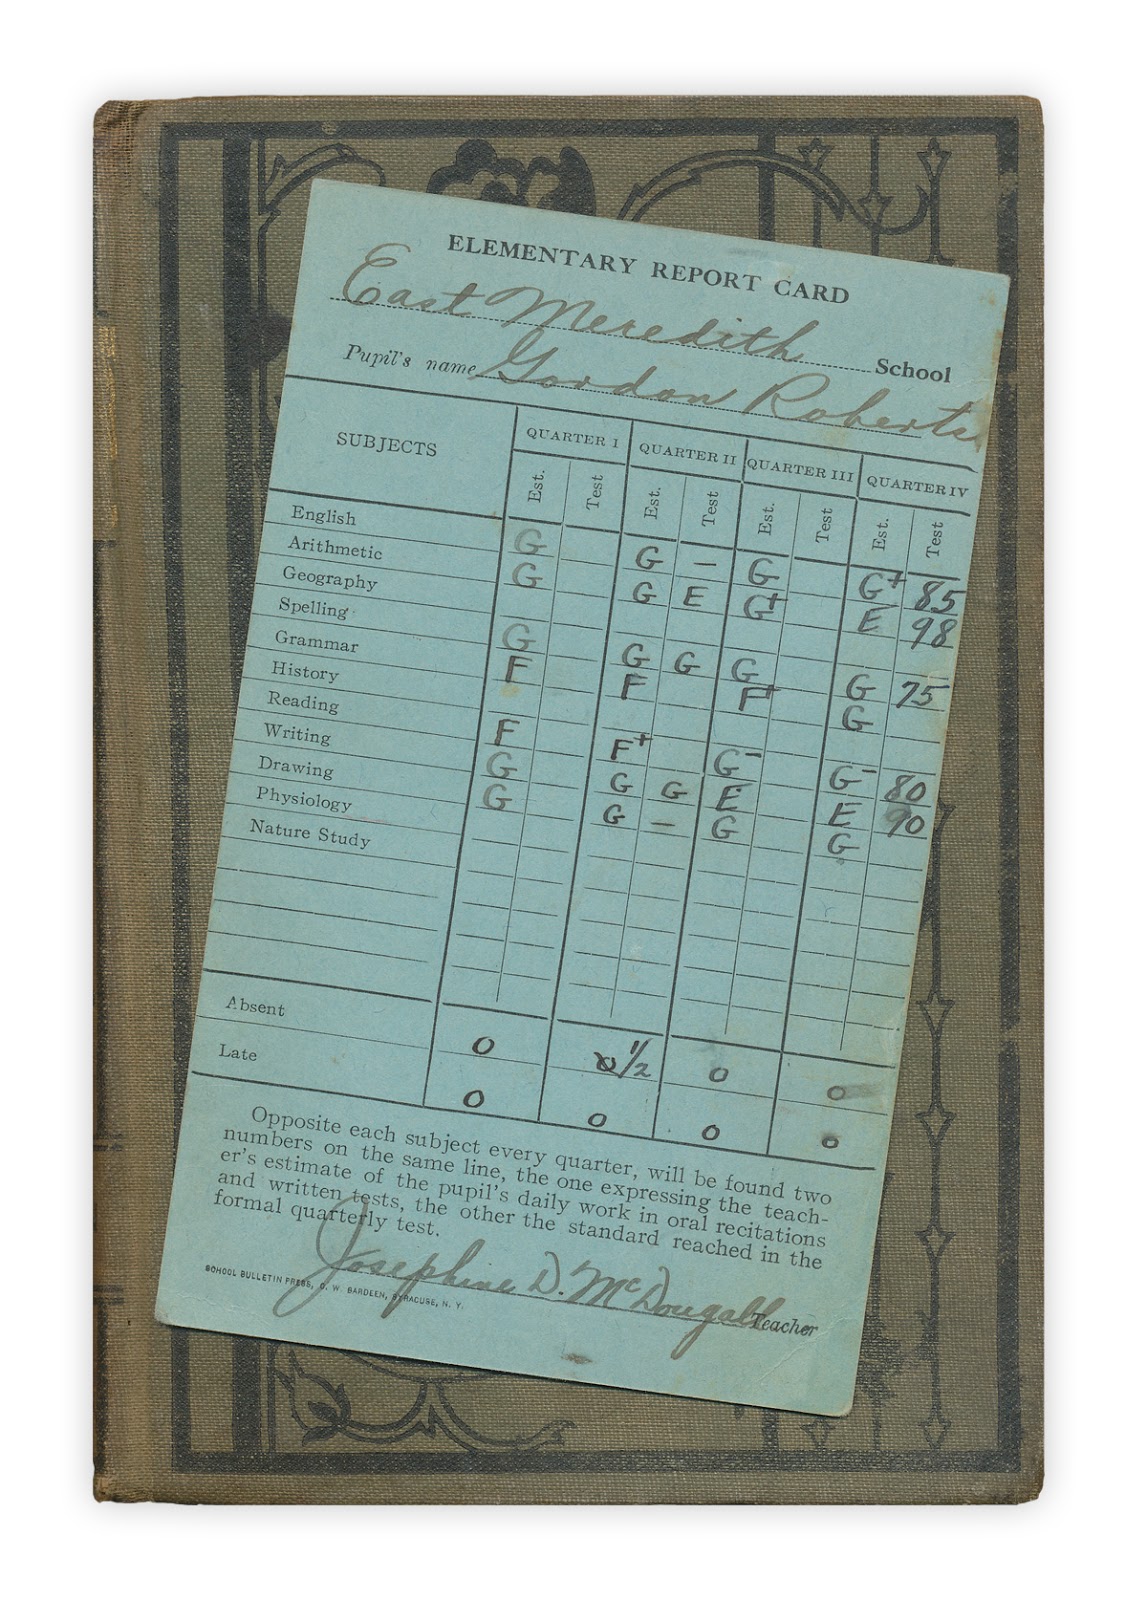 ELEMENTARY REPORT CARD
East Meredith School
Pupil's name Gordon Roberts
SUBJECTS QUARTER I QUARTER II QUARTER III QUARTER IV
Est. Test Est. Test Est. Test Est. Test
English G G - G G+ 85
Arithmetic G G E G+ E 98
Geography
Spelling G G G G G 75
Grammar F F F+ G
History
Reading F F+ G- G- 80
Writing G G G E E 90
Drawing G G - G G
Physiology
Nature Study
Absent 0 1/2 0 0
Late 0 0 0 0
Opposite each subject every quarter, will be found two
numbers on the same line, the one expressing the teach-
er's estimate of the pupil's daily work in oral recitations
and written tests, the other the standard reached in the
formal quarterly test.
Josephine D. McDougall Teacher
SCHOOL BULLETIN PRESS, C. W. BARDEEN, SYRACUSE, N. Y.